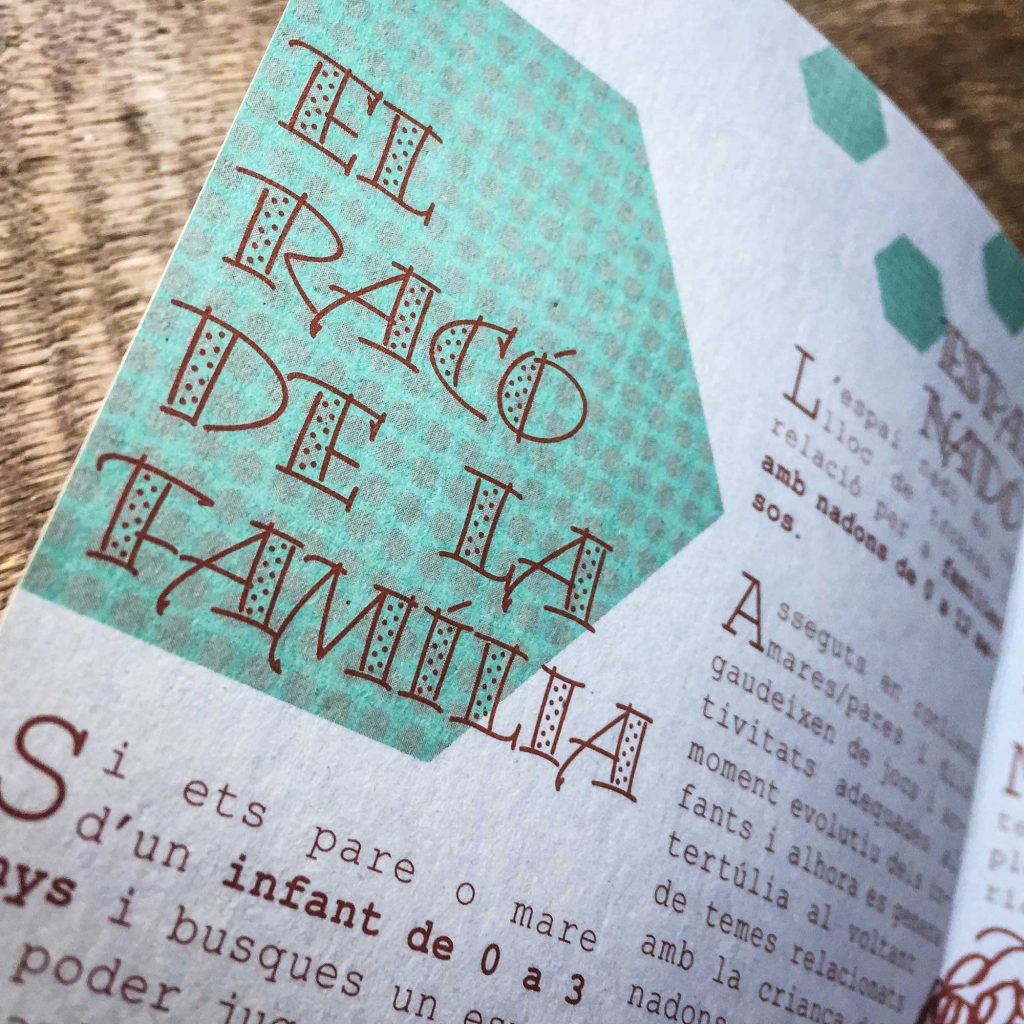 EL
RACÓ
DE LA
FAMÍLIA
Si ets pare o mare
d'un infant de 0 a 3
nys i busques un
poder
ESPA
NADO
L'espai
lloc de
relació per a
amb nadons de 0 a 12 me-
sos.
Asseguts en
mares/pares i
gaudeixen de jocs i
tivitats adequades al
moment evolutiu dels in-
fants i alhora es
tertúlia al voltant
de temes relacionats
amb la criança
nadons